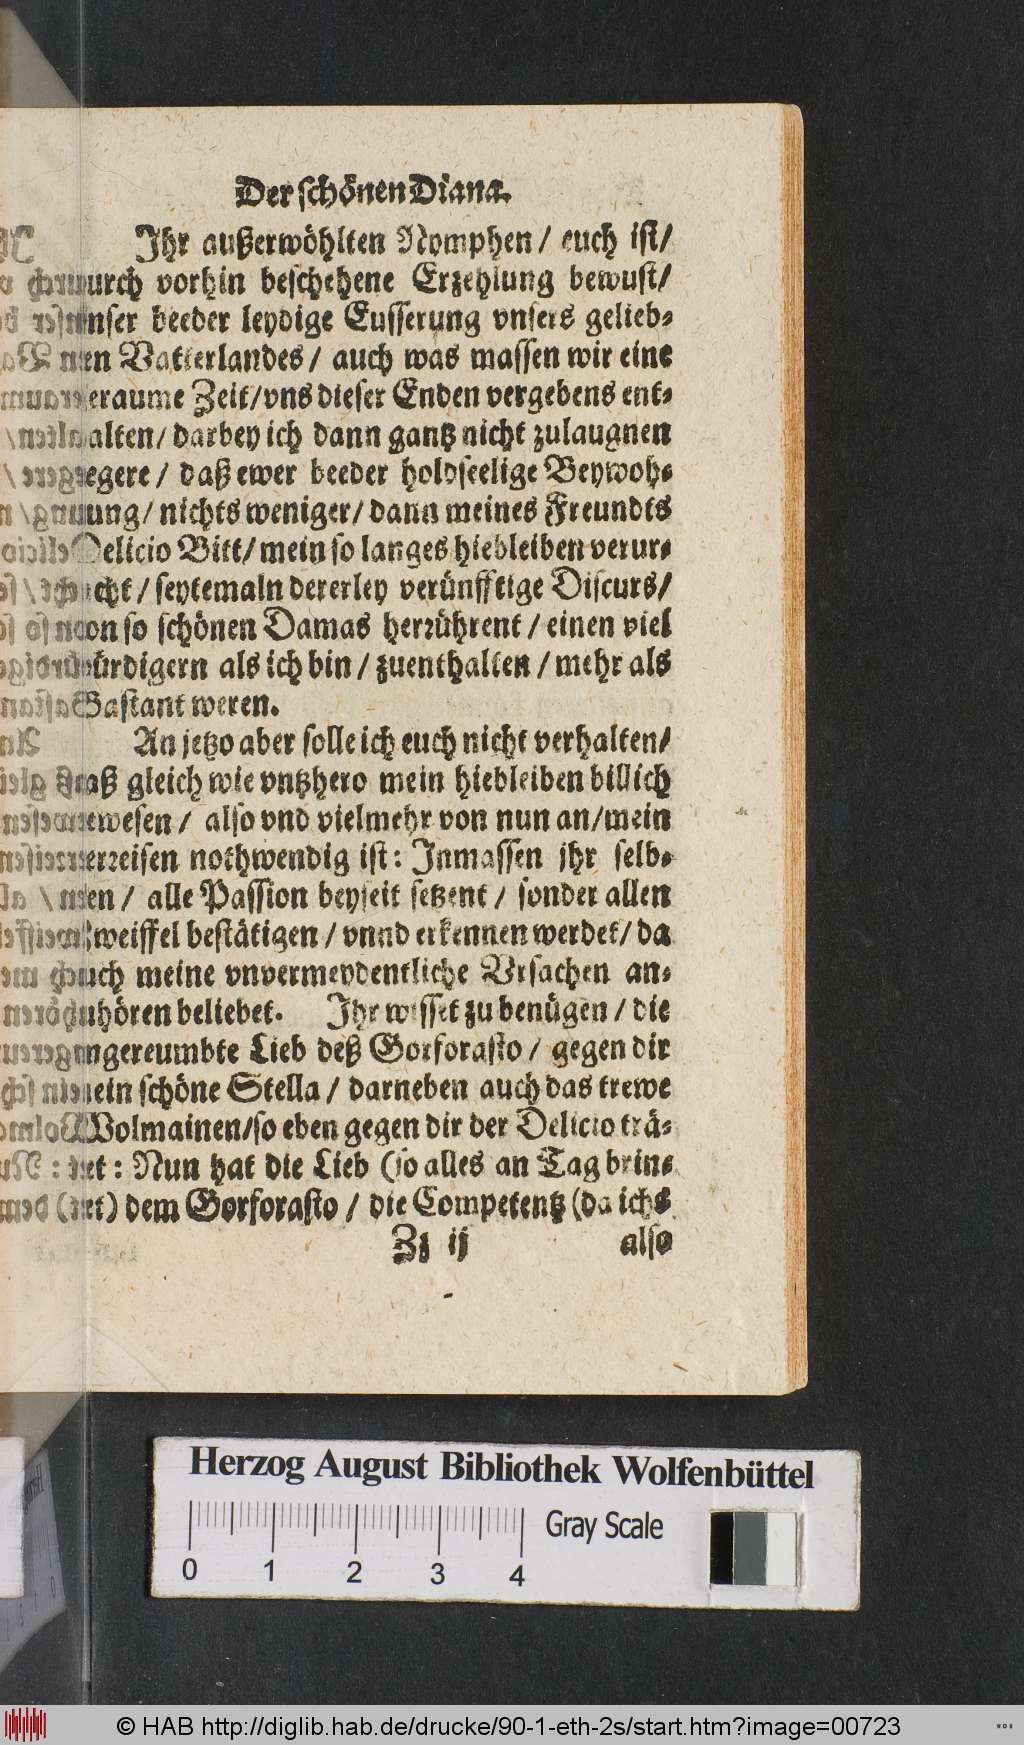 Der schönen Diana.
Jhr außerwöhlten Nymphen / euch ist/
durch vorhin beschehene Erzehlung bewust/
vnser beeder leydige Eusserung vnsers gelieb⸗
ten Vatterlandes / auch was massen wir eine
geraume Zeit/vns dieser Enden vergebens ent⸗
halten/ darbey ich dann gantz nicht zulaugnen
begere / daß ewer beeder holdseelige Beywoh⸗
nung/ nichts weniger/ dann meines Freundts
Delicio Bitt/ mein so langes hiebleiben verur⸗
sacht / seytemaln dererley verünfftige Discurs/
von so schönen Damas herrührent / einen viel
würdigern als ich bin / zuenthalten / mehr als
Bastant weren.
An jetzo aber solle ich euch nicht verhalten/
daß gleich wie vntzhero mein hiebleiben billich
gewesen / also vnd vielmehr von nun an/mein
verreisen nothwendig ist: Jnmassen jhr selb⸗
sten / alle Passion beyseit setzent / sonder allen
zweiffel bestätigen / vnnd erkennen werdet/ da
euch meine vnvermeydentliche Vrsachen an⸗
zuhören beliebet. Jhr wisset zu benügen / die
vngereumbte Lieb deß Gorforasto / gegen dir
mein schöne Stella / darneben auch das trewe
Wolmainen/so eben gegen dir der Delicio trä⸗
get : Nun hat die Lieb (so alles an Tag brin⸗
get) dem Gorforasto / die Competentz (da ichs
Zz ij also
Herzog August Bibliothek Wolfenbüttel
0 1 2 3 4 Gray Scale
© HAB http://diglib.hab.de/drucke/90-1-eth-2s/start.htm?image=00723